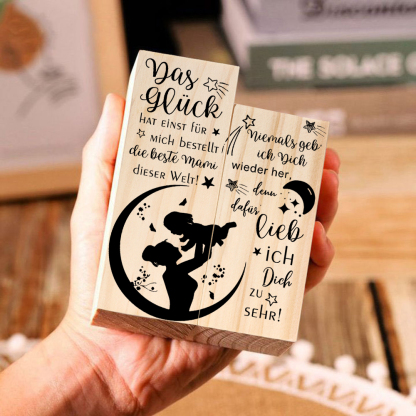 Das
Glück
hat einst für
mich bestellt
die beste Mami
dieser Welt!
Niemals geb
ich Dich
wieder her,
denn
dafür
lieb
ich
Dich
zu
sehr!
THE SOLACE O